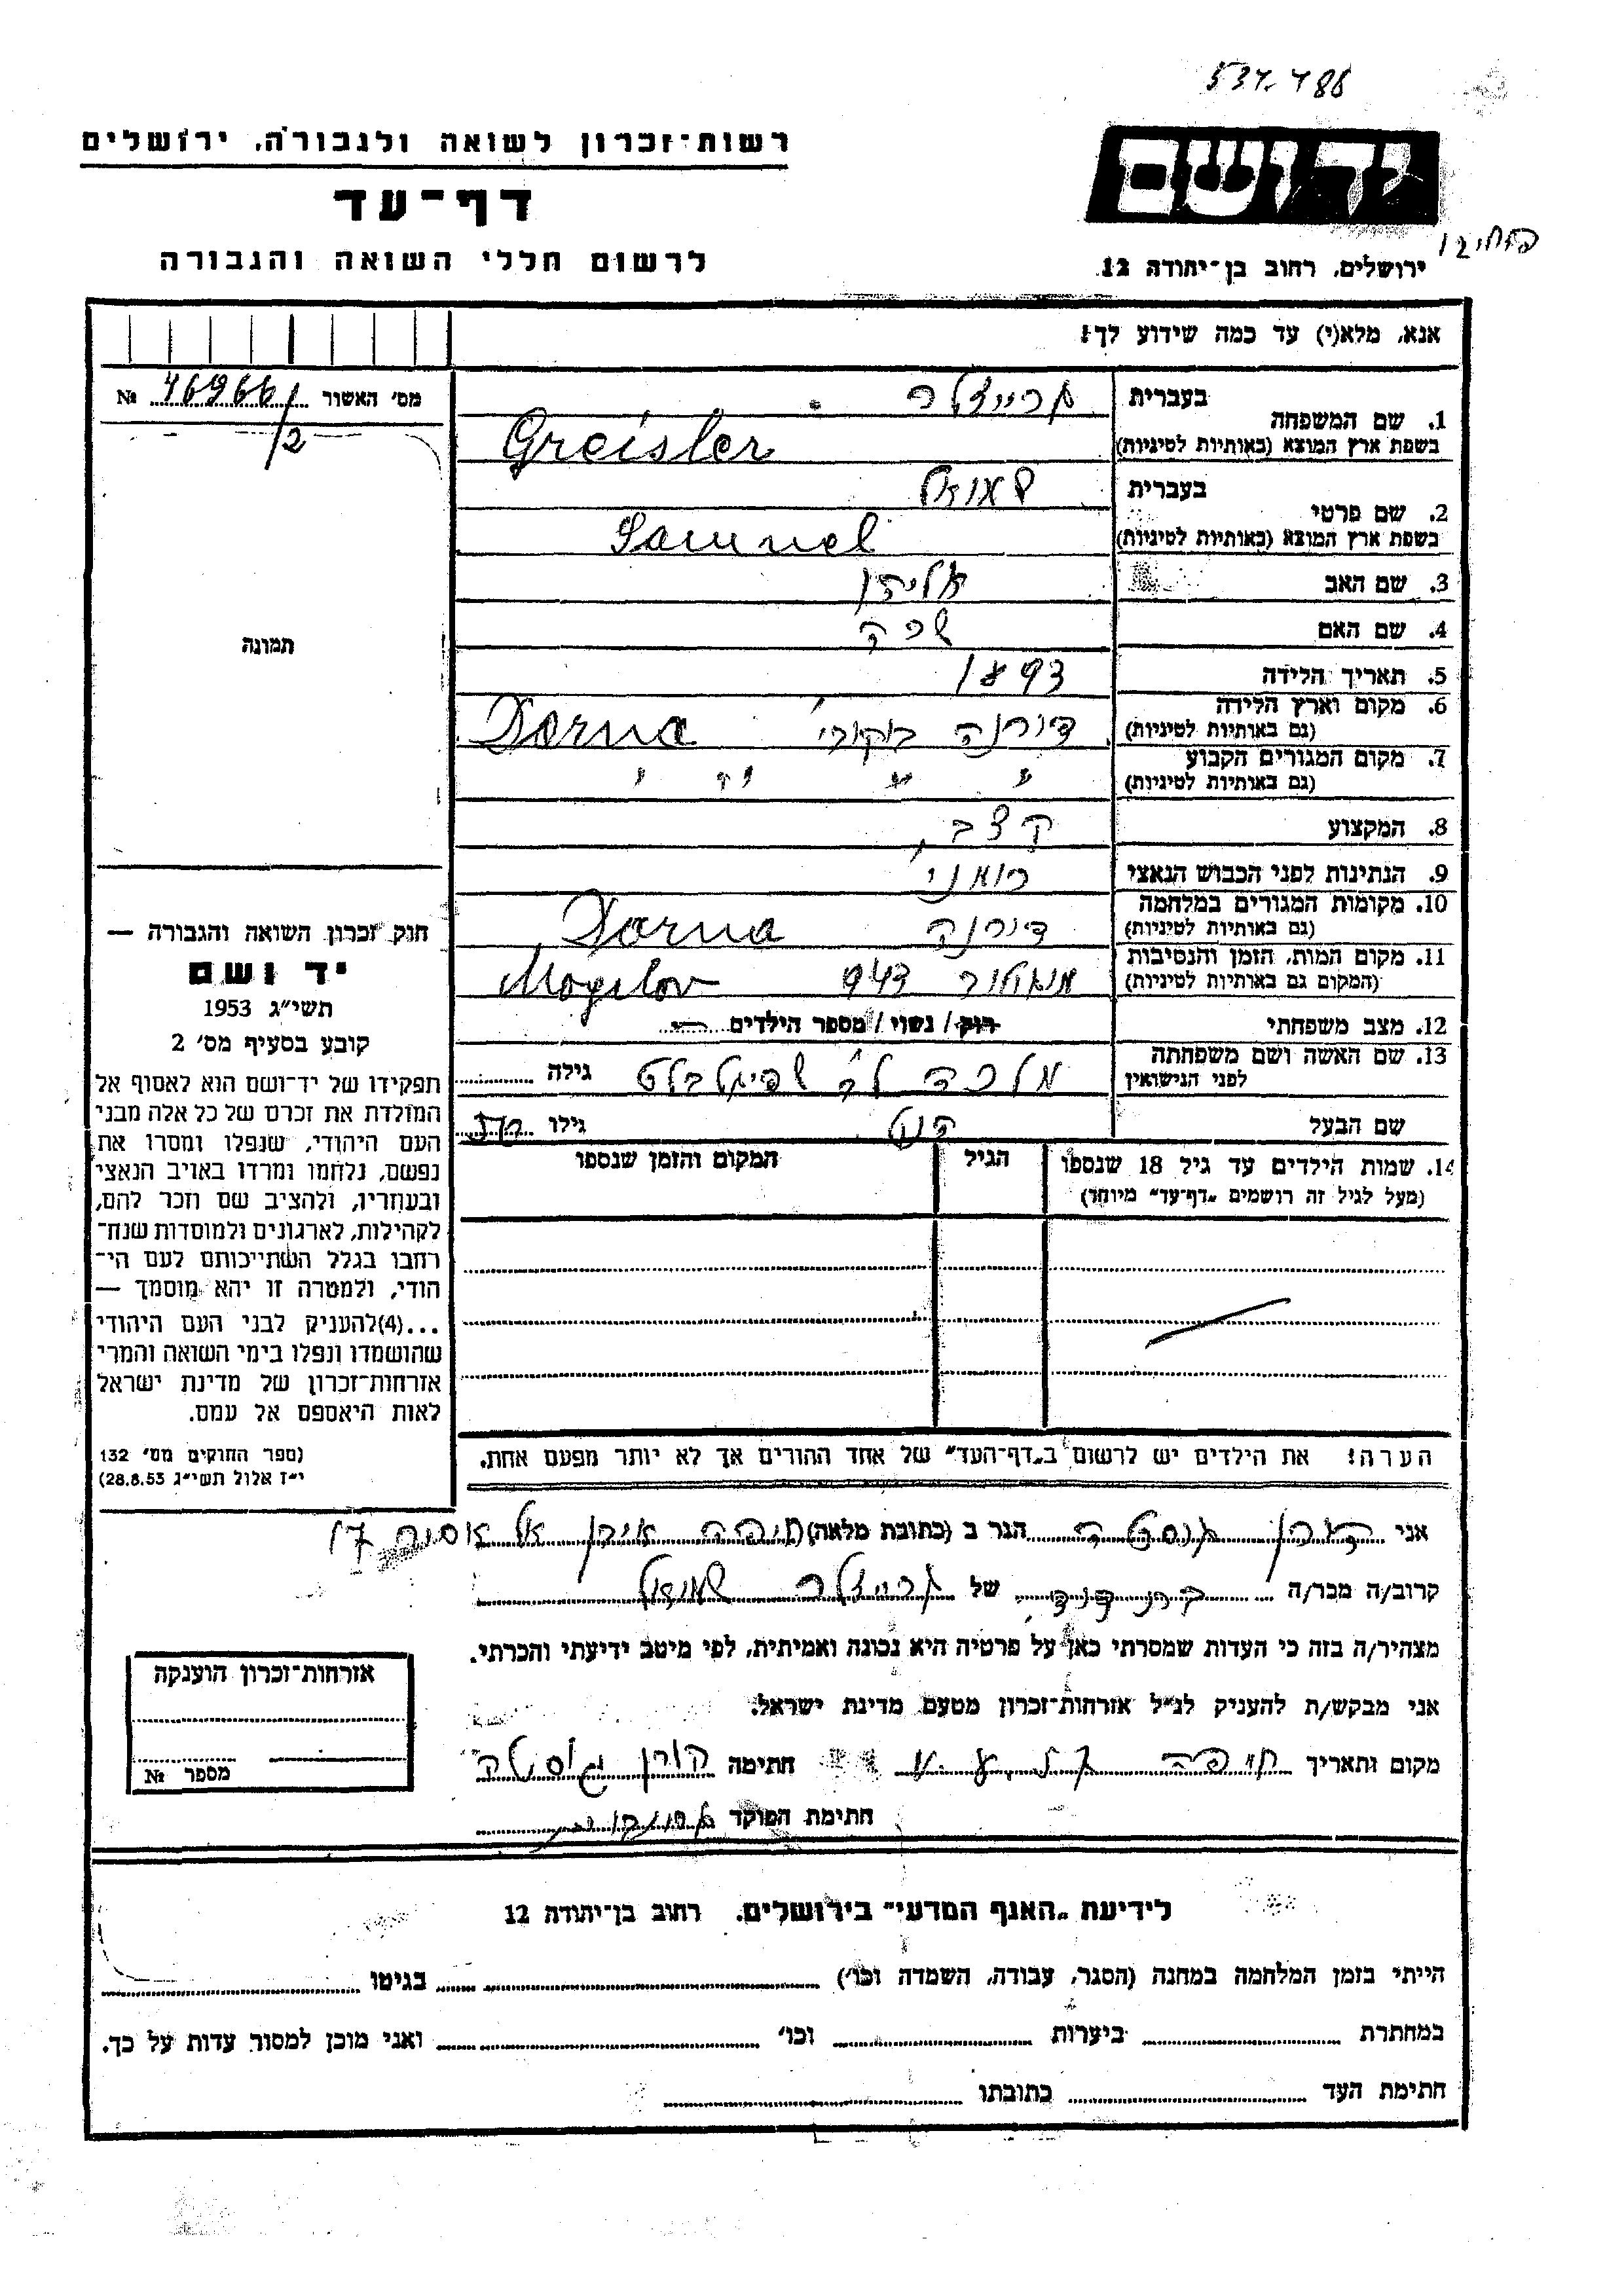 534-488
רשות־זכרון לשואה ולגבורה, ירושלים
יד ושם
דף־עד
לרשום חללי השואה והגבורה
ירושלים, רחוב בן־יהודה 12
אנא, מלא(י) עד כמה שידוע לך!
מס׳ האשור 469661 №
/2
בעברית גרייצלר
1. שם המשפחה
בשפת ארץ המוצא (באותיות לטיניות) Greisler
בעברית שמואל
2. שם פרטי
בשפת ארץ המוצא (באותיות לטיניות) Samuel
3. שם האב
4. שם האם שרה
5. תאריך הלידה 1893
6. מקום וארץ הלידה
(גם באותיות לטיניות) דורנה Dorna
7. מקום המגורים הקבוע
(גם באותיות לטיניות) ״ ״ ״ ״
8. המקצוע קצב
9. הנתינות לפני הכבוש הנאצי רומני
10. מקומות המגורים במלחמה
(גם באותיות לטיניות) דורנה Dorna
11. מקום המות, הזמן והנסיבות
(המקום גם באותיות לטיניות) מוגילוב 943 Mogilov
12. מצב משפחתי רוק / נשוי / מספר הילדים
13. שם האשה ושם משפחתה
לפני הנישואין מלכה לב׳ שפיגלבלט גילה
שם הבעל גילו
14. שמות הילדים עד גיל 18 שנספו הגיל המקום והזמן שנספו
(מעל לגיל זה רושמים „דף־עד״ מיוחד)
הערה! את הילדים יש לרשום ב„דף־העד״ של אחד ההורים אך לא יותר מפעם אחת.
תמונה
חוק זכרון השואה והגבורה —
יד ושם
תשי״ג 1953
קובע בסעיף מס׳ 2
תפקידו של יד־ושם הוא לאסוף אל
המולדת את זכרם של כל אלה מבני
העם היהודי, שנפלו ומסרו את
נפשם, נלחמו ומרדו באויב הנאצי
ובעוזריו, ולהציב שם וזכר להם,
לקהילות, לארגונים ולמוסדות שנח־
רחבו בגלל השתייכותם לעם הי־
הודי, ולמטרה זו יהא מוסמך —
...(4)להעניק לבני העם היהודי
שהושמדו ונפלו בימי השואה והמרי
אזרחות־זכרון של מדינת ישראל
לאות היאספם אל עמם.
(ספר החוקים מס׳ 132
י״ז אלול תשי״ג 28.8.53)
אני קורן גוסטה הגר ב (כתובת מלאה) חיפה 17
קרוב/ה מכר/ה של גרייצלר שמואל
מצהיר/ה בזה כי העדות שמסרתי כאן על פרטיה היא נכונה ואמיתית, לפי מיטב ידיעתי והכרתי.
אני מבקש/ת להעניק לנ״ל אזרחות־זכרון מטעם מדינת ישראל.
מקום ותאריך חיפה חתימה קורן גוסטה
חתימת הפוקד
אזרחות־זכרון הוענקה
מספר №
לידיעת „האגף המדעי״ בירושלים, רחוב בן־יהודה 12
הייתי בזמן המלחמה במחנה (הסגר, עבודה, השמדה וכו׳) בגיטו
במחתרת ביערות וכו׳ ואני מוכן למסור עדות על כך.
חתימת העד כתובתו